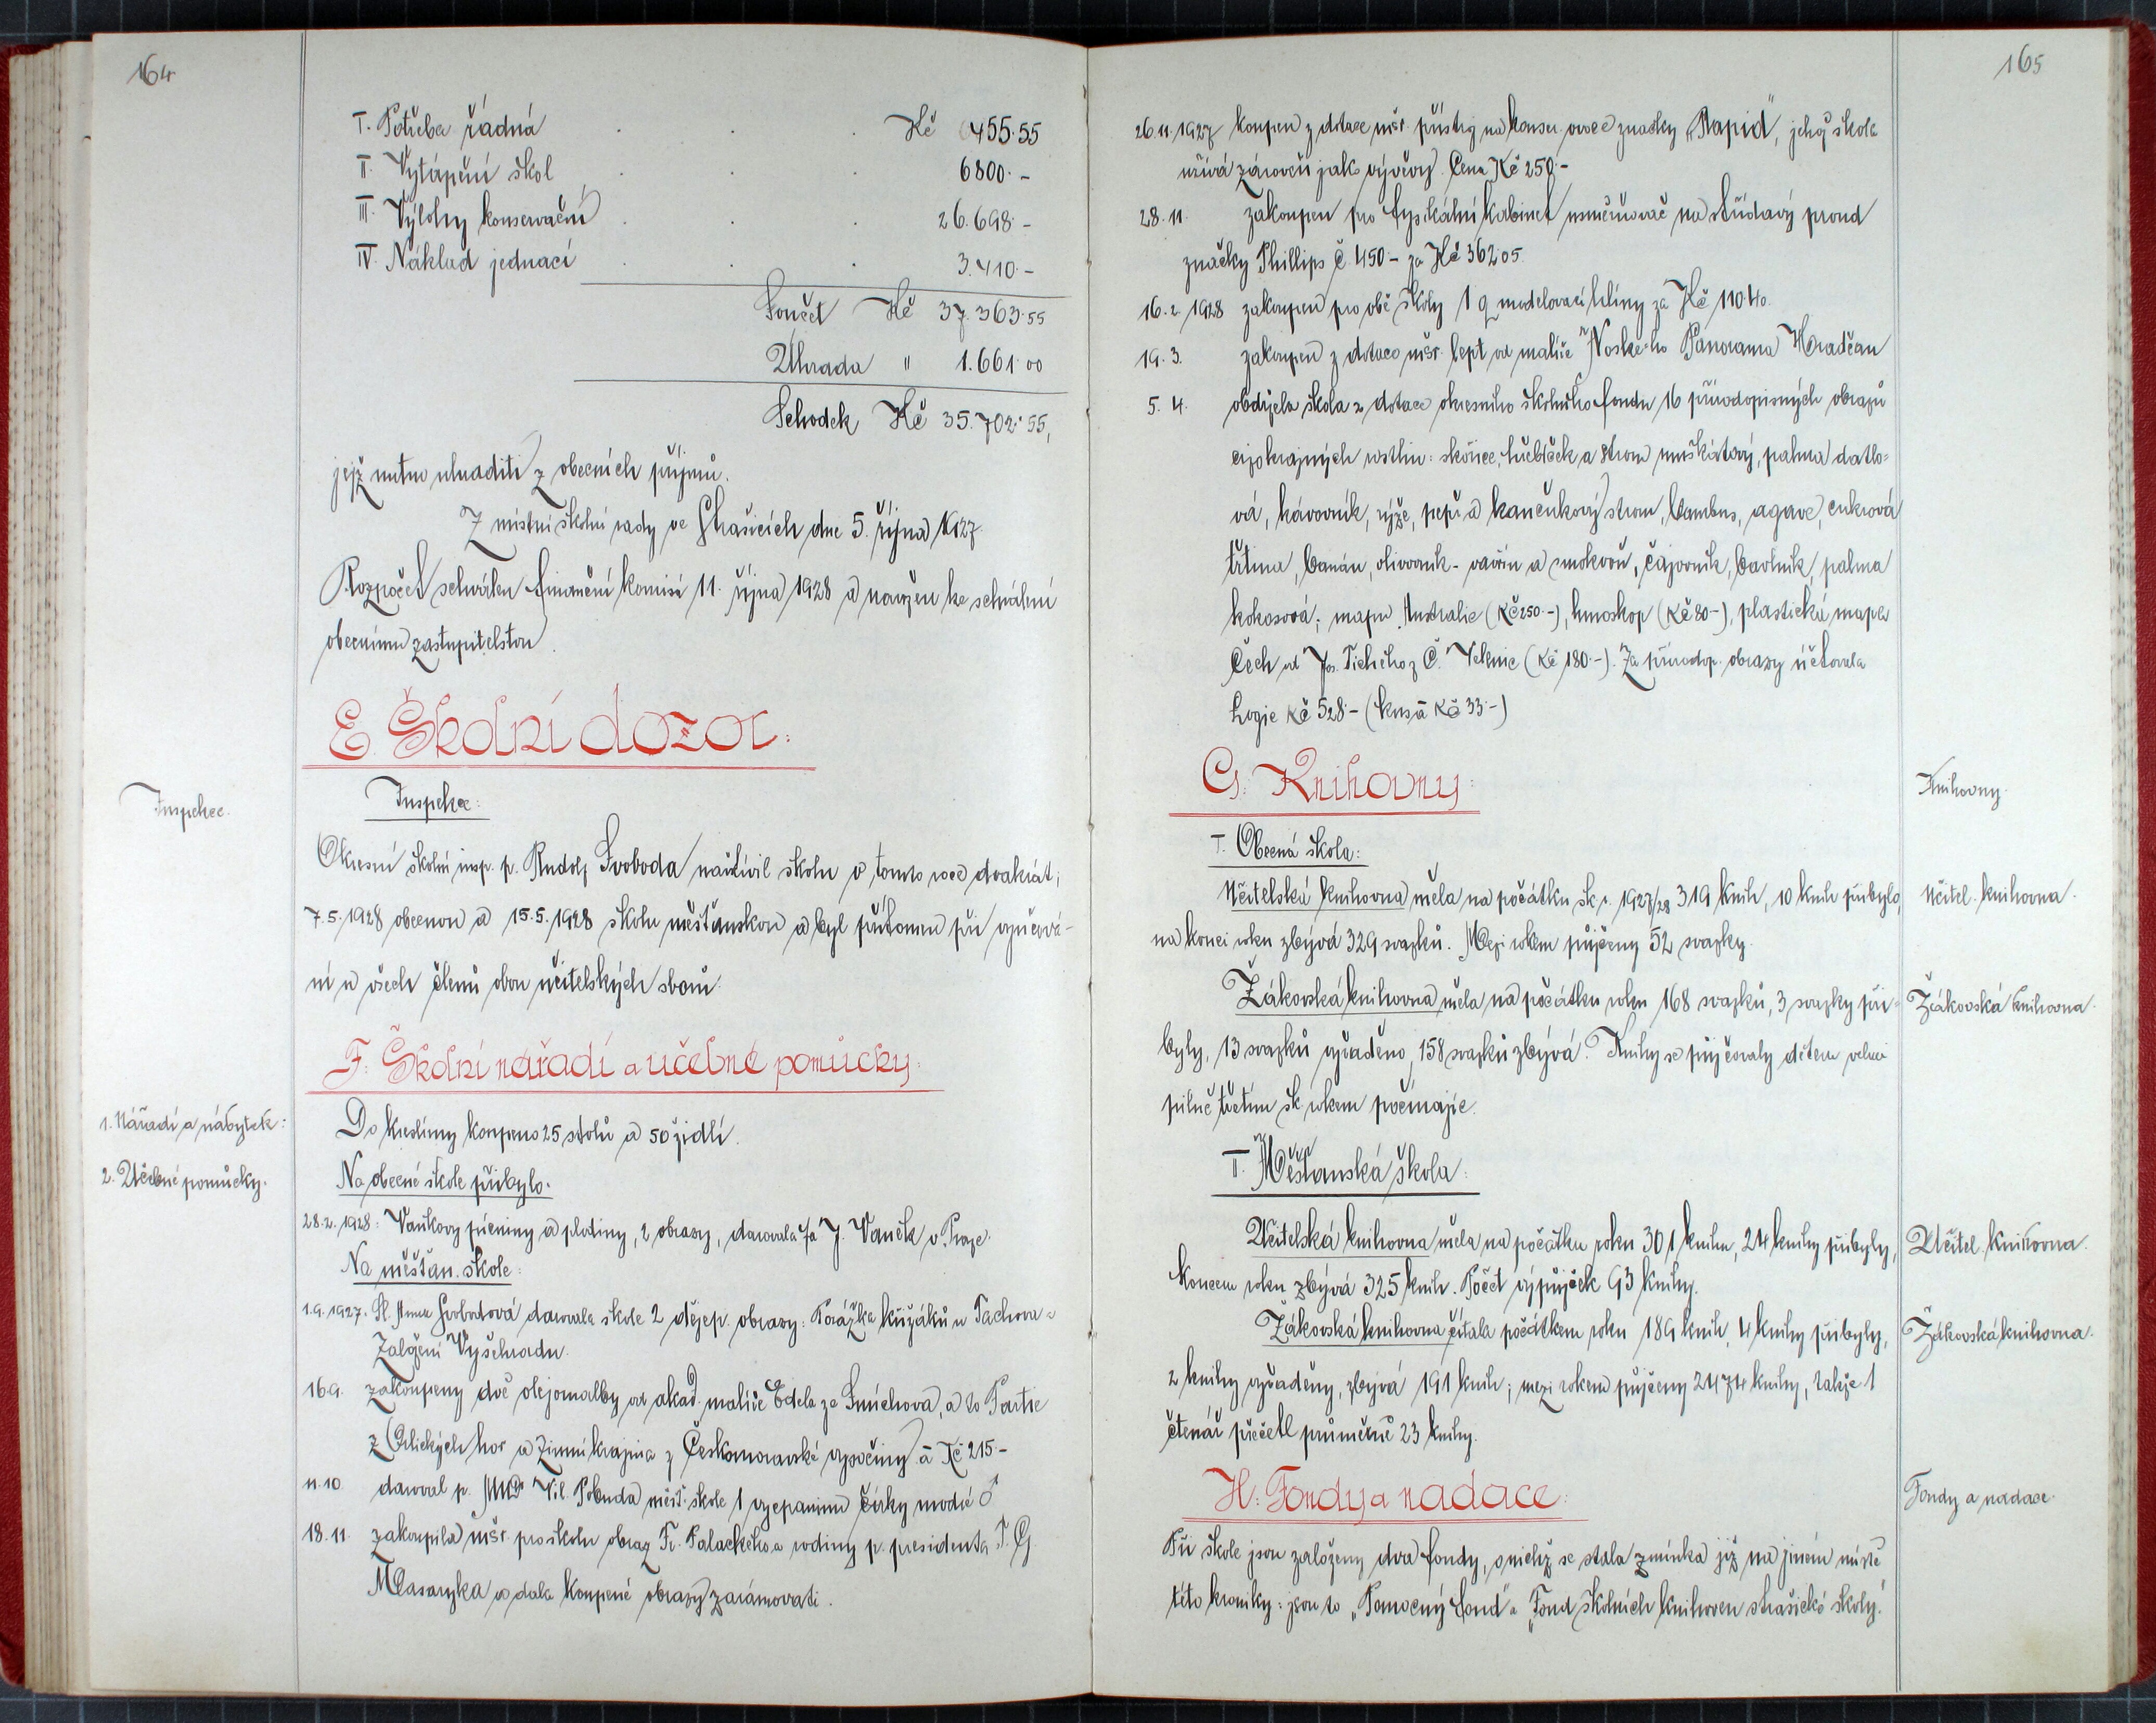 164
I. Potřeba řádná . . . Kč 455·55
II. Vytápění škol . . . 6800·-
III. Výlohy konservační . . . 26.698·-
IV. Náklad jednací . . . 3.410·-
Součet Kč 37.363·55
Úhrada " 1.661·00
Schodek Kč 35.702·55,
jejž nutno uhraditi z obecních příjmů.
Z místní školní rady ve Strašicích dne 5. října 1927.
Rozpočet schválen finanční komisí 11. října 1928 a navržen ke schválení
obecnímu zastupitelstvu.
E. Školní dozor:
Inspekce.
Inspekce:
Okresní školní insp. p. Rudolf Svoboda navštívil školu v tomto roce dvakrát;
7.5.1928 obecnou a 15.5.1928 školu měšťanskou a byl přítomen při vyučová-
ní u všech členů obou učitelských sborů.
F: Školní nářadí a učebné pomůcky:
1. Nářadí a nábytek:
Do kreslírny koupeno 25 stolů a 50 židlí.
2. Učebné pomůcky.
Na obecné škole přibylo:
28.2.1928: Vaňkovy pícniny a plodiny, 2 obrazy, darovala fa J. Vaněk v Praze.
Na měšťan. škole:
1.9.1927. Sl. Anna Svobodová darovala škole 2 dějep. obrazy: Porážka křižáků u Tachova a
Založení Vyšehradu.
16.9. zakoupeny dvě olejomalby od akad. malíře Edela ze Smíchova, a to Partie
z Orlických hor a Zimní krajina z Českomoravské vysočiny à Kč 215·-
11.10. daroval p. MUDr Vil. Pobuda měšť. škole 1 vycpaninu čírky modré ♂
18.11. zakoupila mšr. pro školu obraz Fr. Palackého a rodiny p. presidenta T. G.
Masaryka a dala koupené obrazy zarámovati.
165
26.11.1927 koupen z dotace mšr. přístroj na konser. ovoce značky „Rapid", jehož škola
užívá zároveň jako vývěvy. Cena Kč 250·-
28.11. zakoupen pro fysikální kabinet usměrňovač na střídavý proud
značky Phillips č. 450- za Kč 362·05.
16.2.1928 zakoupen pro obě školy 1 q modelovací hlíny za Kč 110·40.
19.3. zakoupen z dotace mšr. lept od malíře Noskeho Panorama Hradčan
5.4. obdržela škola z dotace okresního školního fondu 16 přírodopisných obrazů
cizokrajných rostlin: skořice, hřebíček a strom muškátový, palma datlo=
vá, kávovník, rýže, pepř a kaučukový strom, bambus, agave, cukrová
třtina, banán, olivovník - vavřín a smokvoň, čajovník, bavlník, palma
kokosová; mapu Australie (Kč 250·-), hmoskop (Kč 80-), plastická mapa
Čech od Jos. Tichého z Č. Velenic (Kč 180·-). Za přírodop. obrazy účtovala
Logie Kč 528·- (kus à Kč 33·-)
G: Knihovny:
Knihovny.
I. Obecná škola:
Učitelská knihovna měla na počátku šk. r. 1927/28 319 knih, 10 knih přibylo,
Učitel. knihovna.
na konci roku zbývá 329 svazků. Mezi rokem půjčeny 52 svazky.
Žákovská knihovna měla na počátku roku 168 svazků, 3 svazky při=
Žákovská knihovna.
byly, 13 svazků vyřaděno, 158 svazků zbývá. Knihy se půjčovaly dětem velmi
pilně třetím šk. rokem počínajíc.
II. Měšťanská škola:
Učitelská knihovna měla na počátku roku 301 knihu, 24 knihy přibyly,
Učitel. knihovna.
koncem roku zbývá 325 knih. Počet výpůjček 93 knihy.
Žákovská knihovna čítala počátkem roku 189 knih, 4 knihy přibyly,
Žákovská knihovna.
2 knihy vyřaděny, zbývá 191 knih; mezi rokem půjčeny 2474 knihy, takže 1
čtenář přečetl průměrně 23 knihy.
H: Fondy a nadace:
Fondy a nadace.
Při škole jsou založeny dva fondy, o nichž se stala zmínka již na jiném místě
této kroniky: jsou to „Pomocný fond" a „Fond školních knihoven strašické školy."